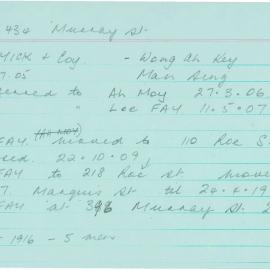 434 Murray St.
MICK + Coy. - Wong Ah Key
7.05 Man Sing
to Ah Moy 27.3.06
" Lee FAY 11.5.07
(AH MOY)
FAY moved to 110 Roe S
22.10.09
FAY to 218 Roe st move
7. Marquis St till 24.4.19
FAY at 396 Murray St 2
- 1916 - 5 men